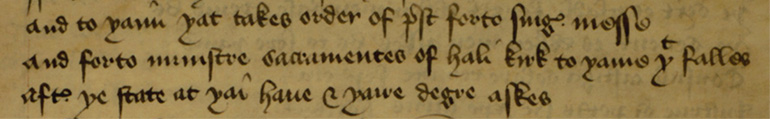 and to yaim yat takes order of p̄st forto sing᷒ messe
and forto ministre sacramentes of hali kirk to yaime yͭ falles
aft᷒ ye state at yai haue & yaire degre askes